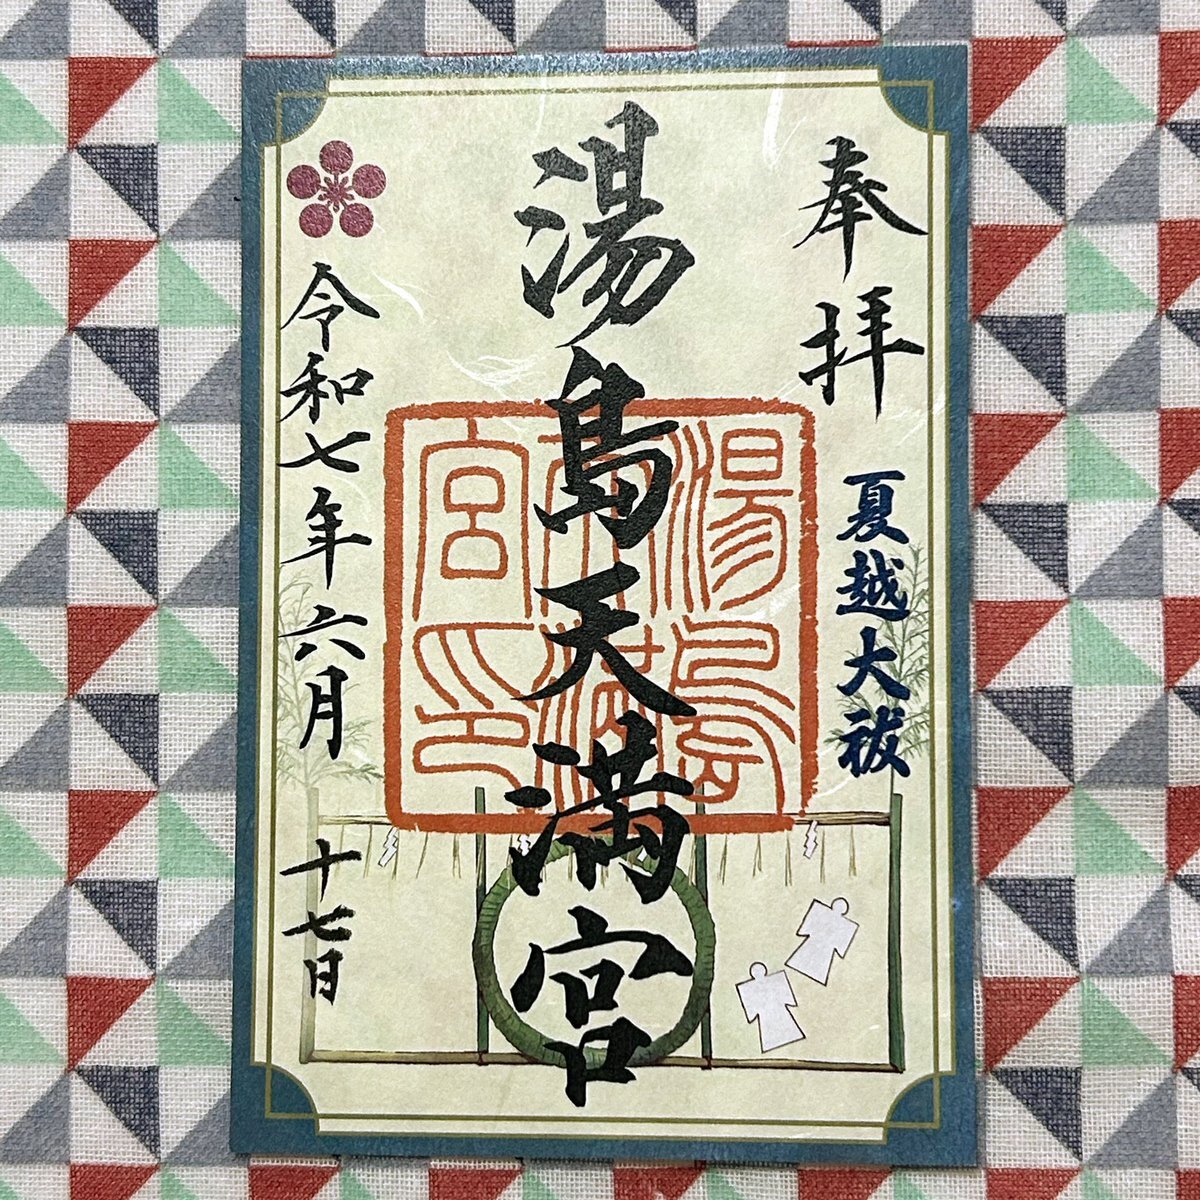 奉拝
夏越大祓
湯島天満宮
湯島天満宮印
令和七年六月十七日